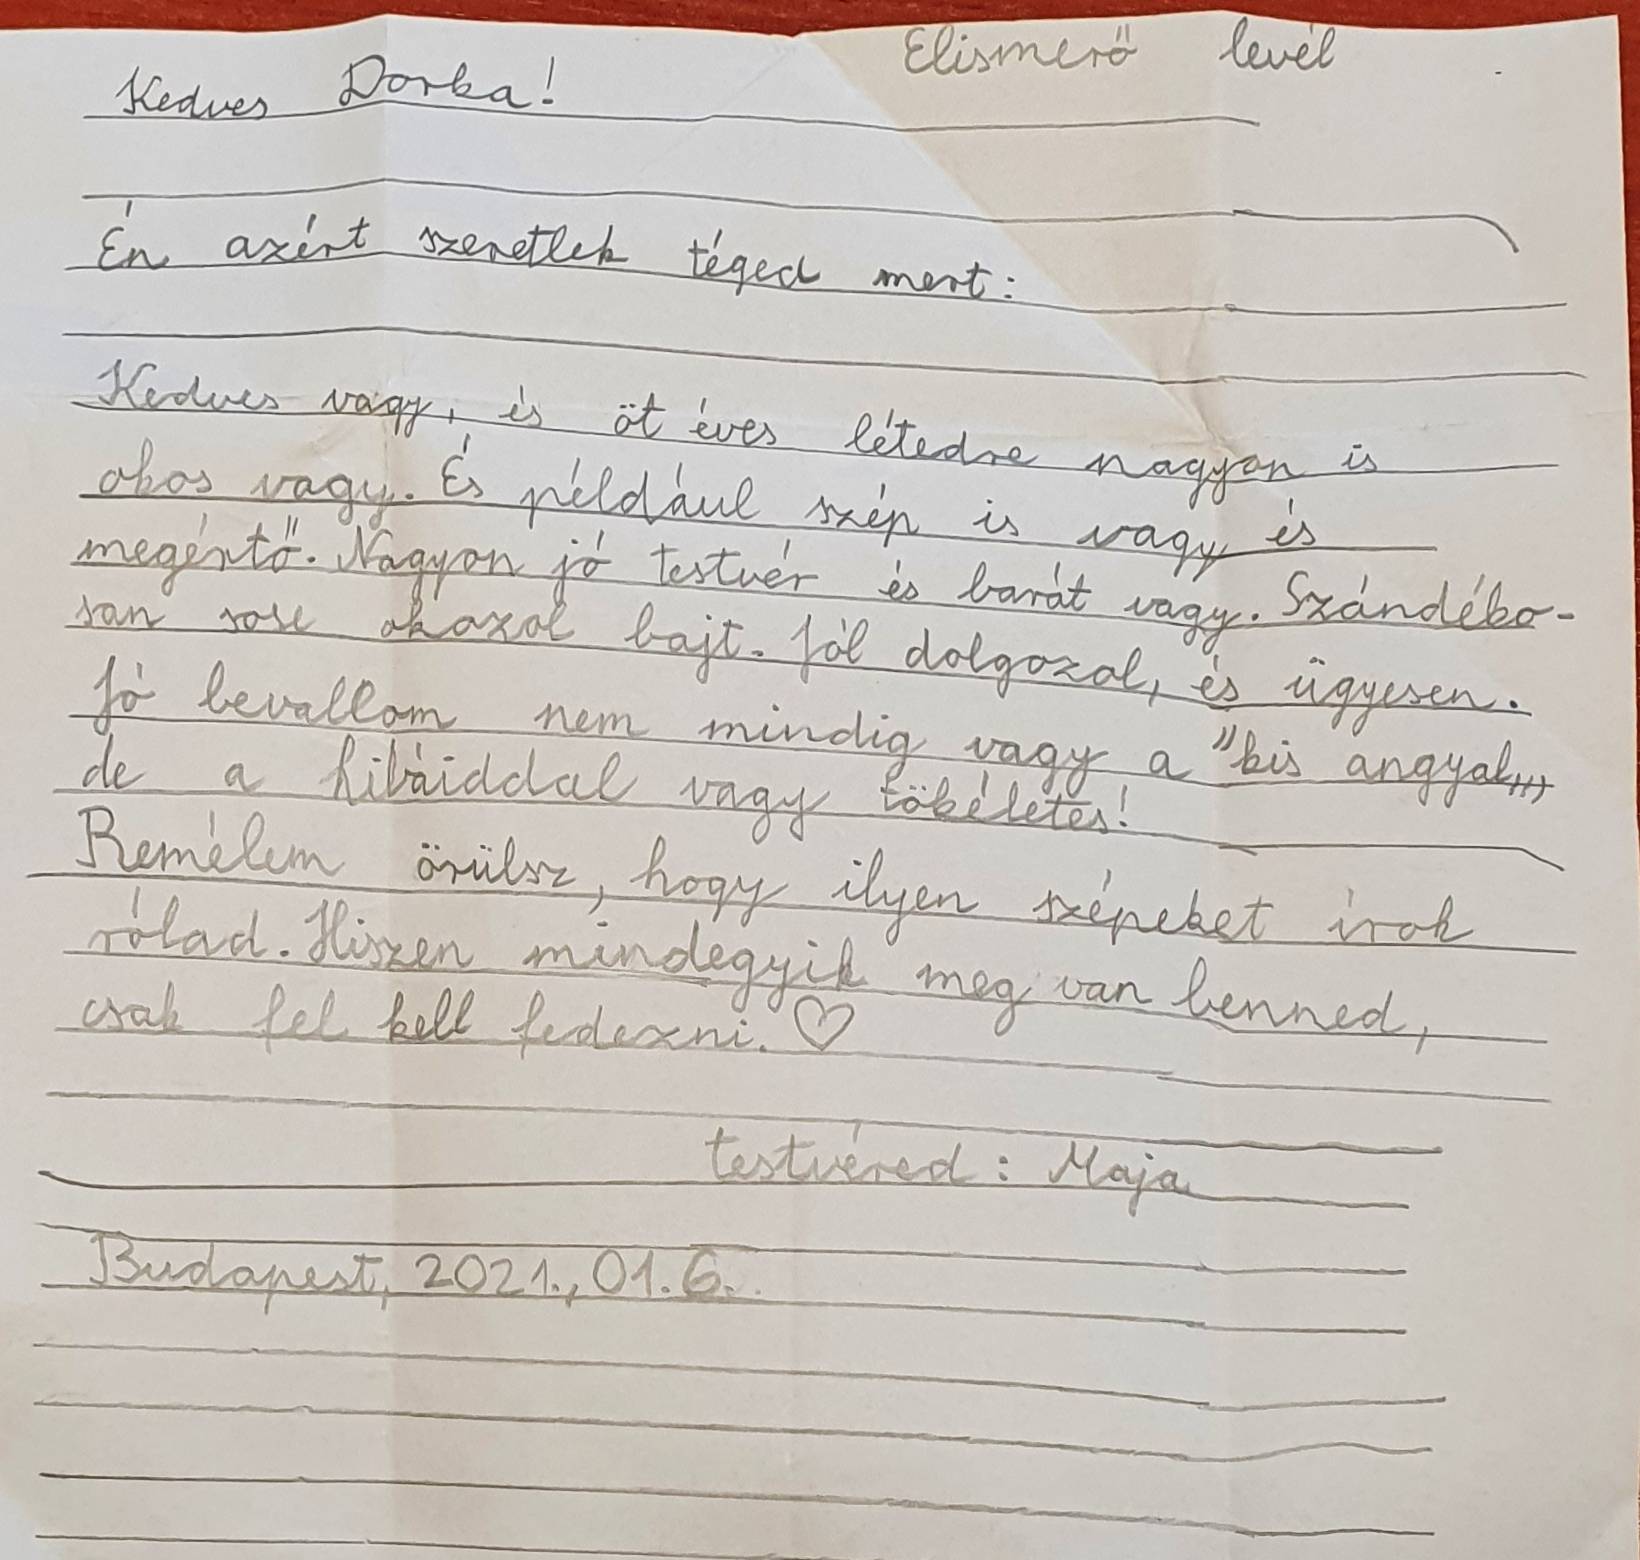 Elismerő levél
Kedves Dorka!
Én azért szeretlek téged mert:
Kedves vagy, és öt éves létedre nagyon is
okos vagy. És például szép is vagy és
megértő. Nagyon jó testvér és barát vagy. Szándébo-
san sose okozol bajt. Jól dolgozol, és ügyesen.
Jó bevallom nem mindig vagy a "kis angyal„,
de a hibáiddal vagy tökéletes!
Remélem örülsz, hogy ilyen szépeket írok
rólad. Hiszen mindegyik meg van benned,
csak fel kell fedezni. ♡
testvéred: Maja
Budapest, 2021., 01.6.